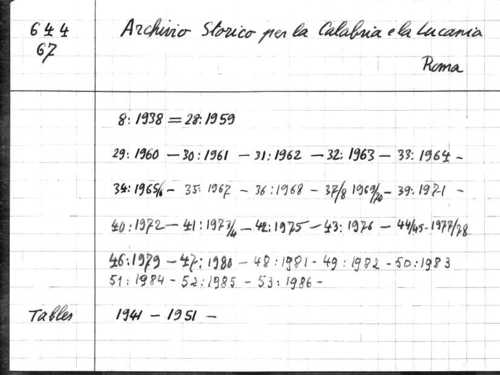 644 Archivio Storico per la Calabria e la Lucania
67 Roma
8: 1938 = 28: 1959
29: 1960 - 30: 1961 - 31: 1962 - 32: 1963 - 33: 1964 -
34: 1965/6 - 35: 1967 - 36: 1968 - 37/8 1969/70 - 39: 1971 -
40: 1972 - 41: 1973/4 - 42: 1975 - 43: 1976 - 44/45 - 1977/78
46: 1979 - 47: 1980 - 48: 1981 - 49: 1982 - 50: 1983
51: 1984 - 52: 1985 - 53: 1986 -
Tables 1941 - 1951 -